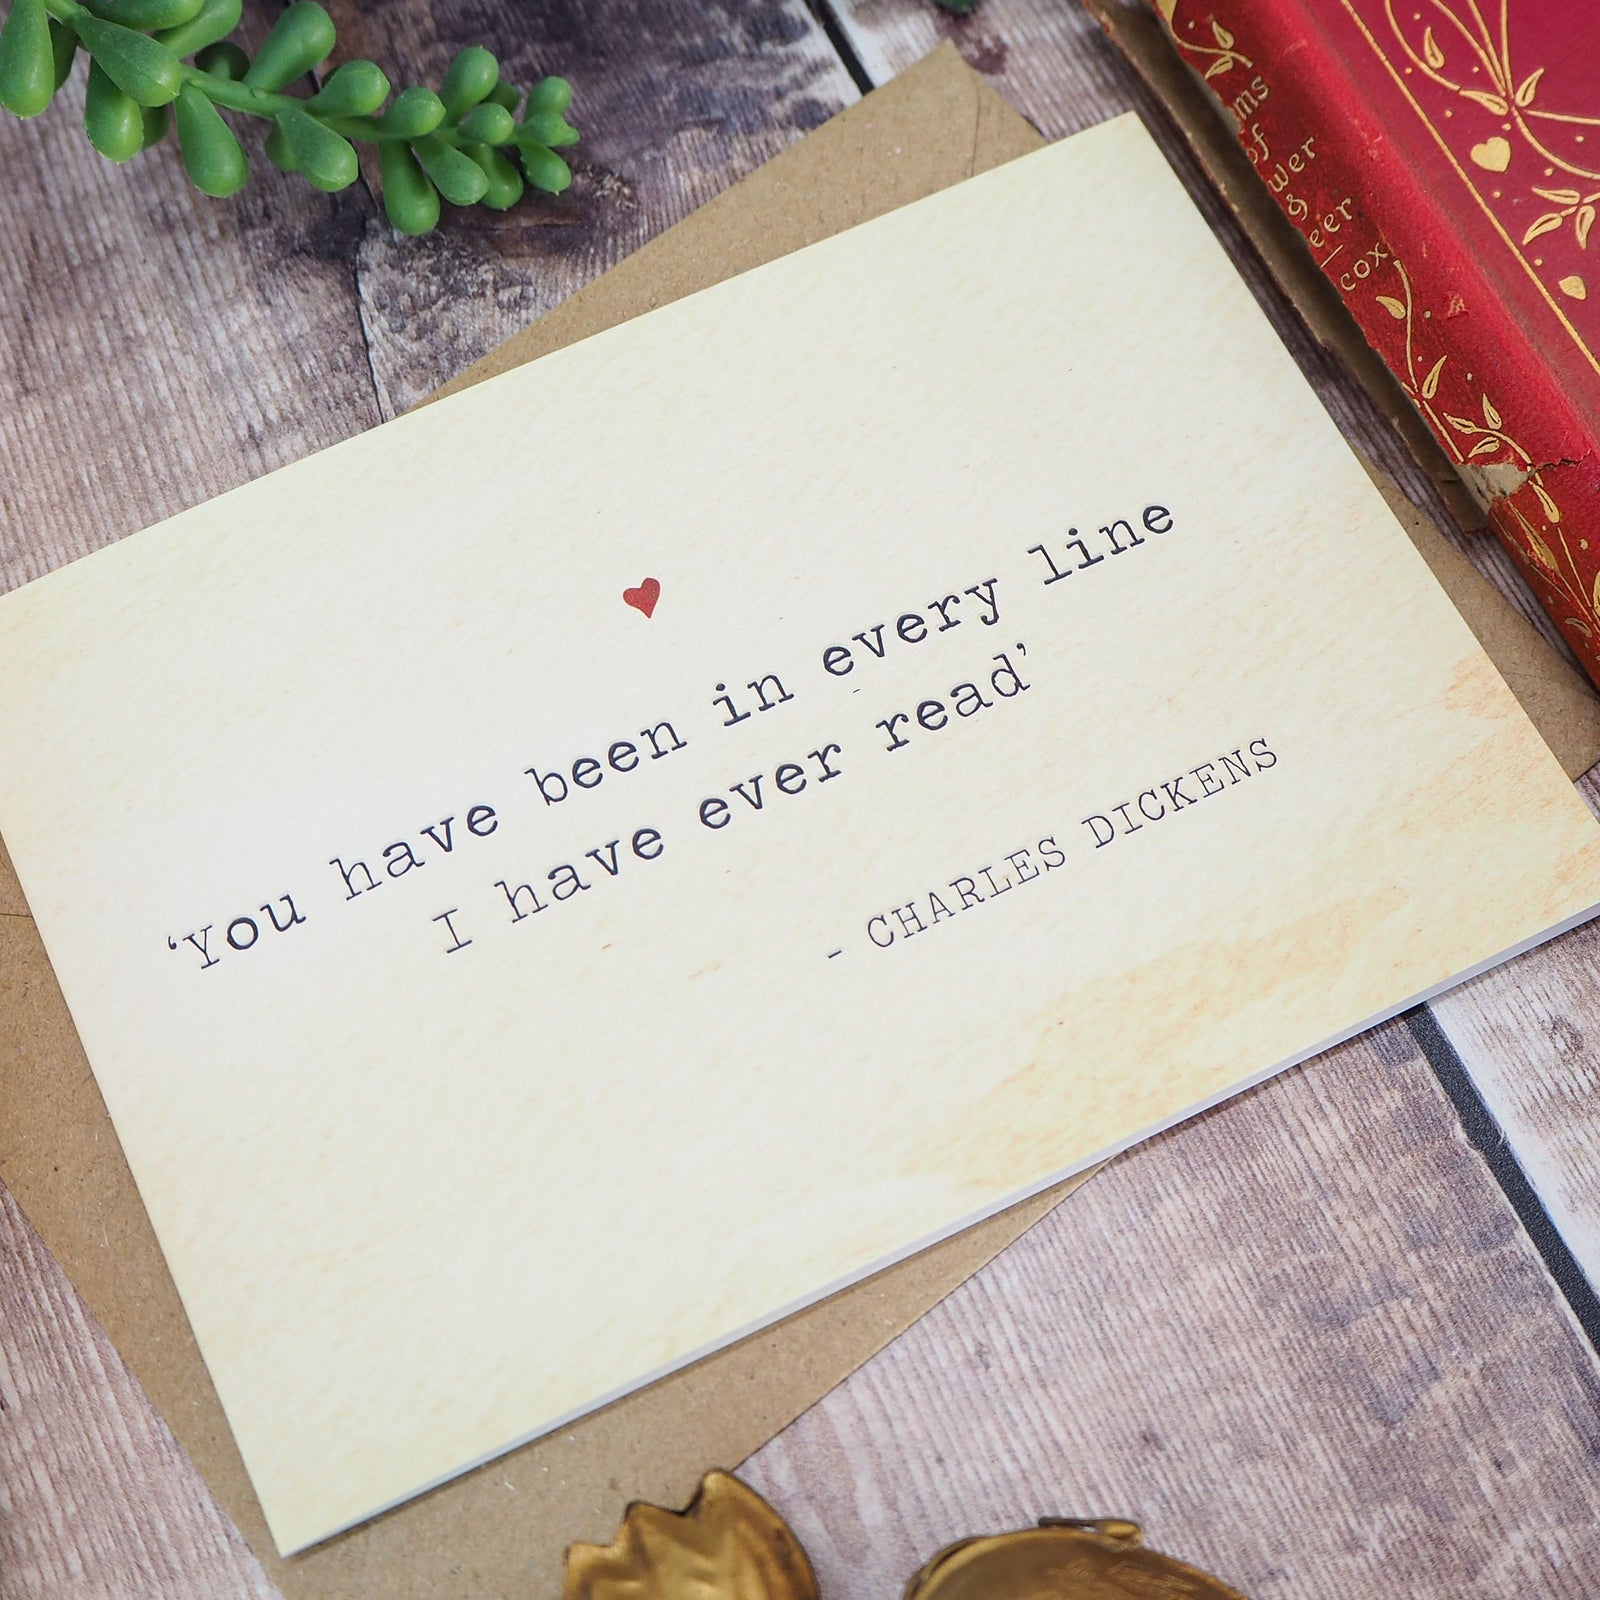 ‘You have been in every line
I have ever read’
- CHARLES DICKENS
ms
of
wer
&
eer
cox